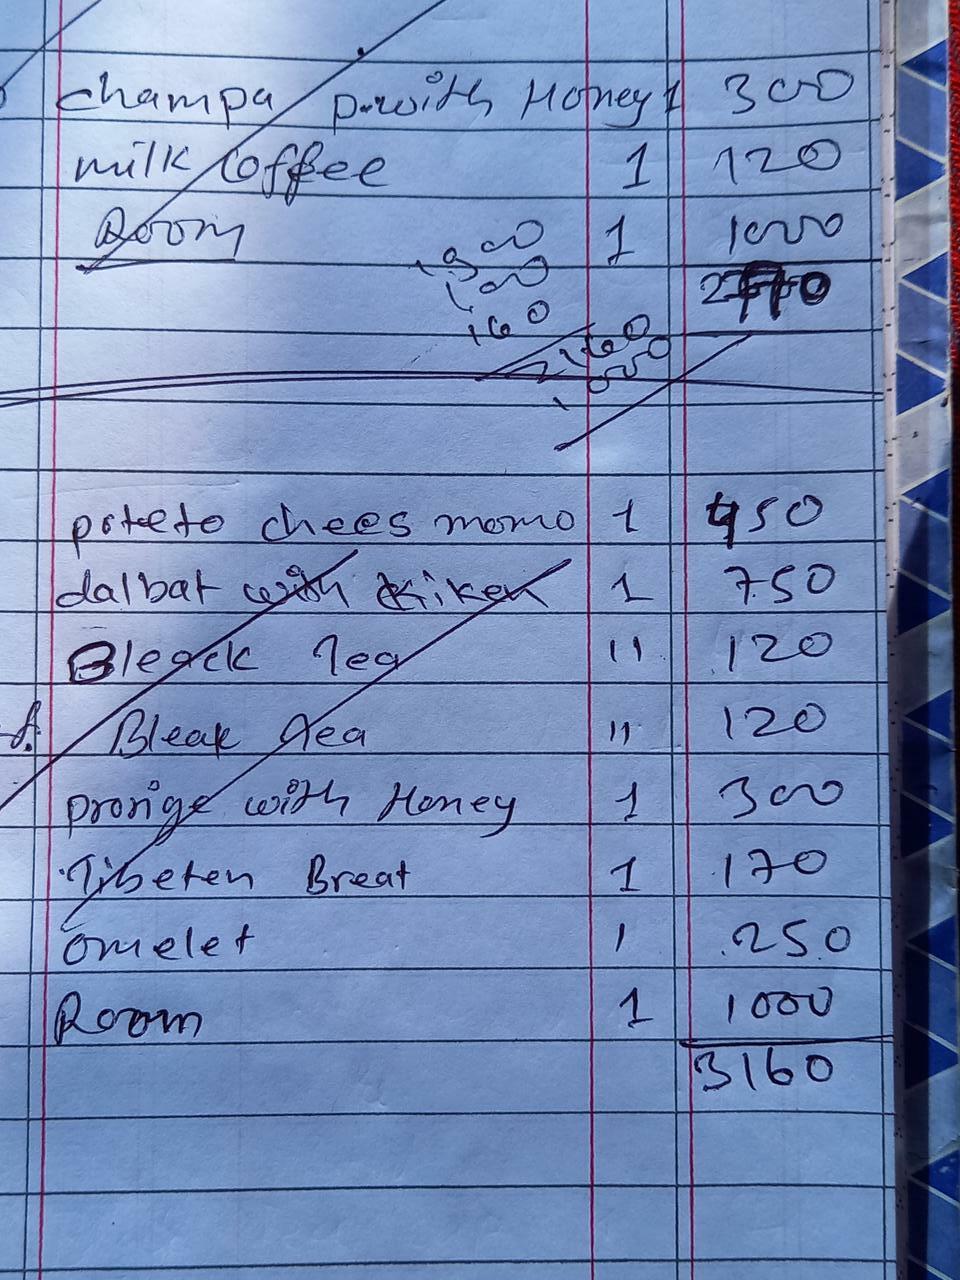 champa p.with Honey 1 300
milk coffee 1 120
Room 1 1000
160
160
poteto chees momo 1 450
dalbat with kiken 1 750
Bleack Tea 11 120
Bleak Tea 11 120
prorige with Honey 1 300
Tibeten Breat 1 170
omelet 1 250
Room 1 1000
3160